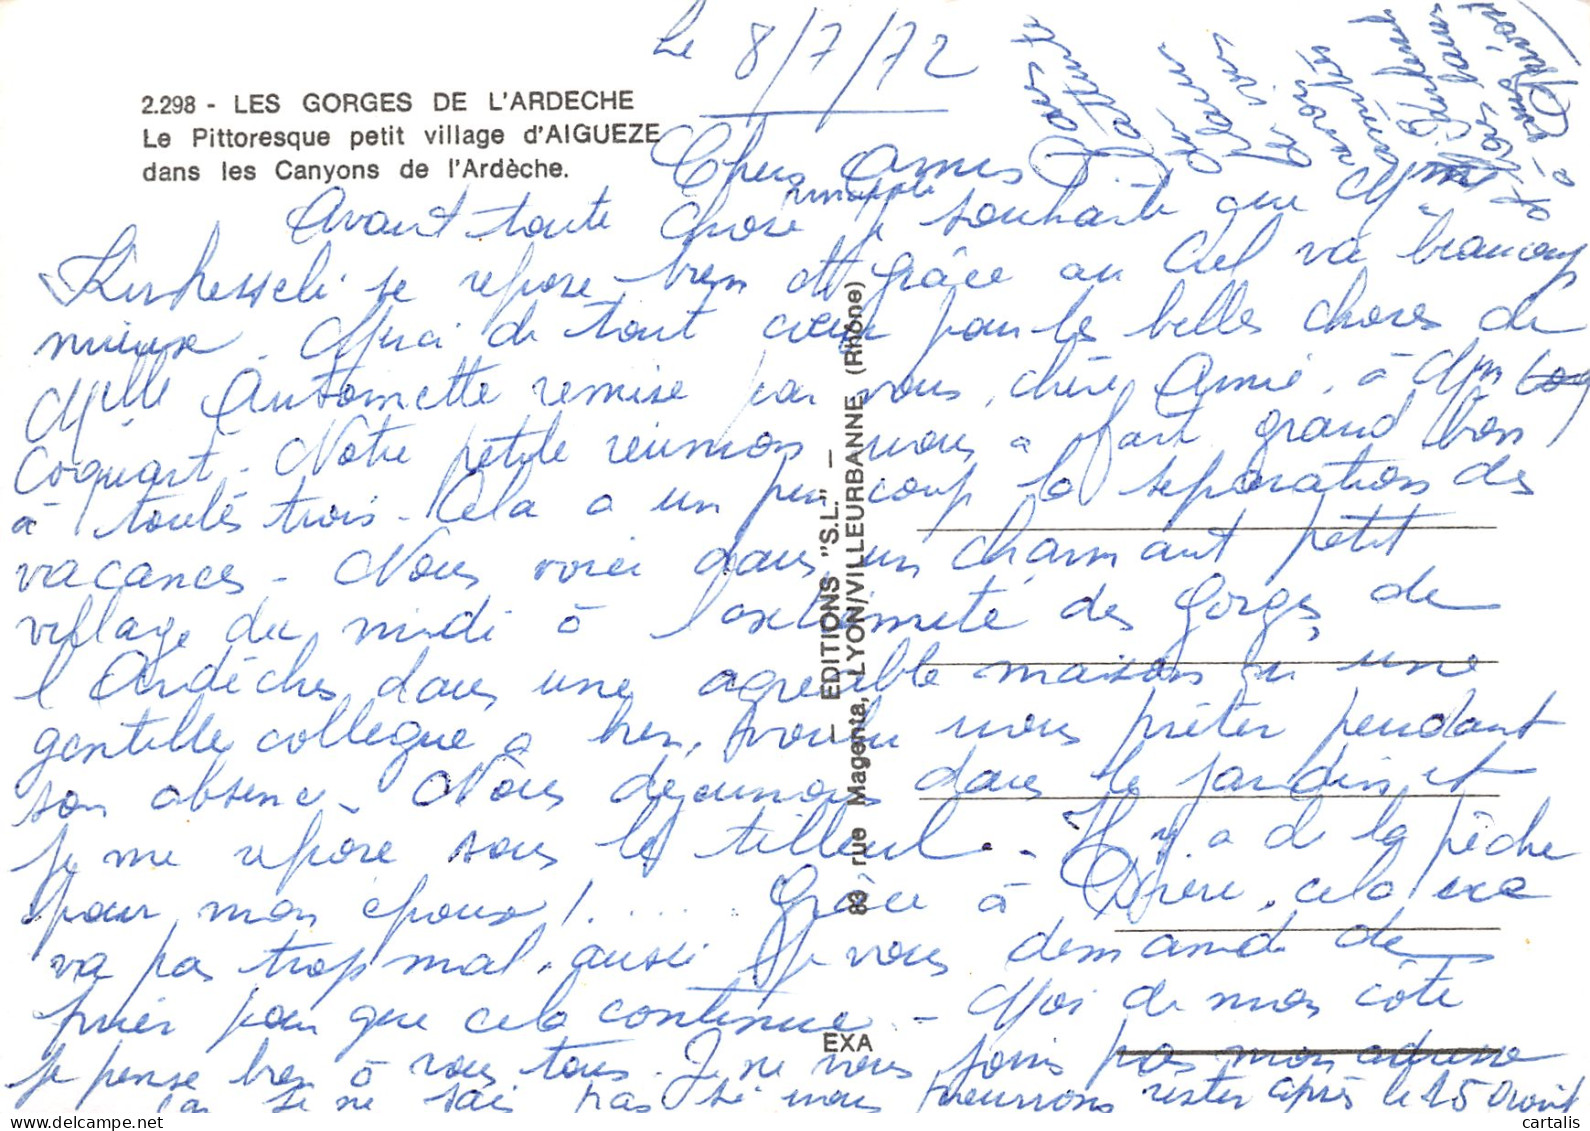 Le 8/7/72
2.298 - LES GORGES DE L'ARDECHE
Le Pittoresque petit village d'AIGUEZE
dans les Canyons de l'Ardèche.
Chers Amis
Avant toute chose je souhaite que Mme
se repose bien et grâce au Ciel va beaucoup
mieux. Merci de tout cœur pour les belles choses de
Mlle Antoinette remise par vous, chère Amie, à Mme
Coquart. Notre petite réunion nous a fait grand bon
à toutes trois. Cela a un peu coupé la séparation des
vacances. Nous voici dans un charmant petit
village du midi à l'extrémité des Gorges de
l'Ardèche, dans une agréable maison qu'une
gentille collègue a bien voulu nous prêter pendant
son absence. Nous déjeunons dans le jardin et
je me repose sous le tilleul. Il y a de la pêche
pour mon époux !..... Grâce à cela
va pas trop mal, aussi je vous demande de
prier pour que cela continue. Moi de mon côté
je pense bien à vous tous. Je ne vous joins pas mon adresse
car je ne sais pas si nous pourrons rester après le 15 Août
— EDITIONS "S.L." —
83, rue Magenta, LYON/VILLEURBANNE (Rhône)
EXA
cartalis